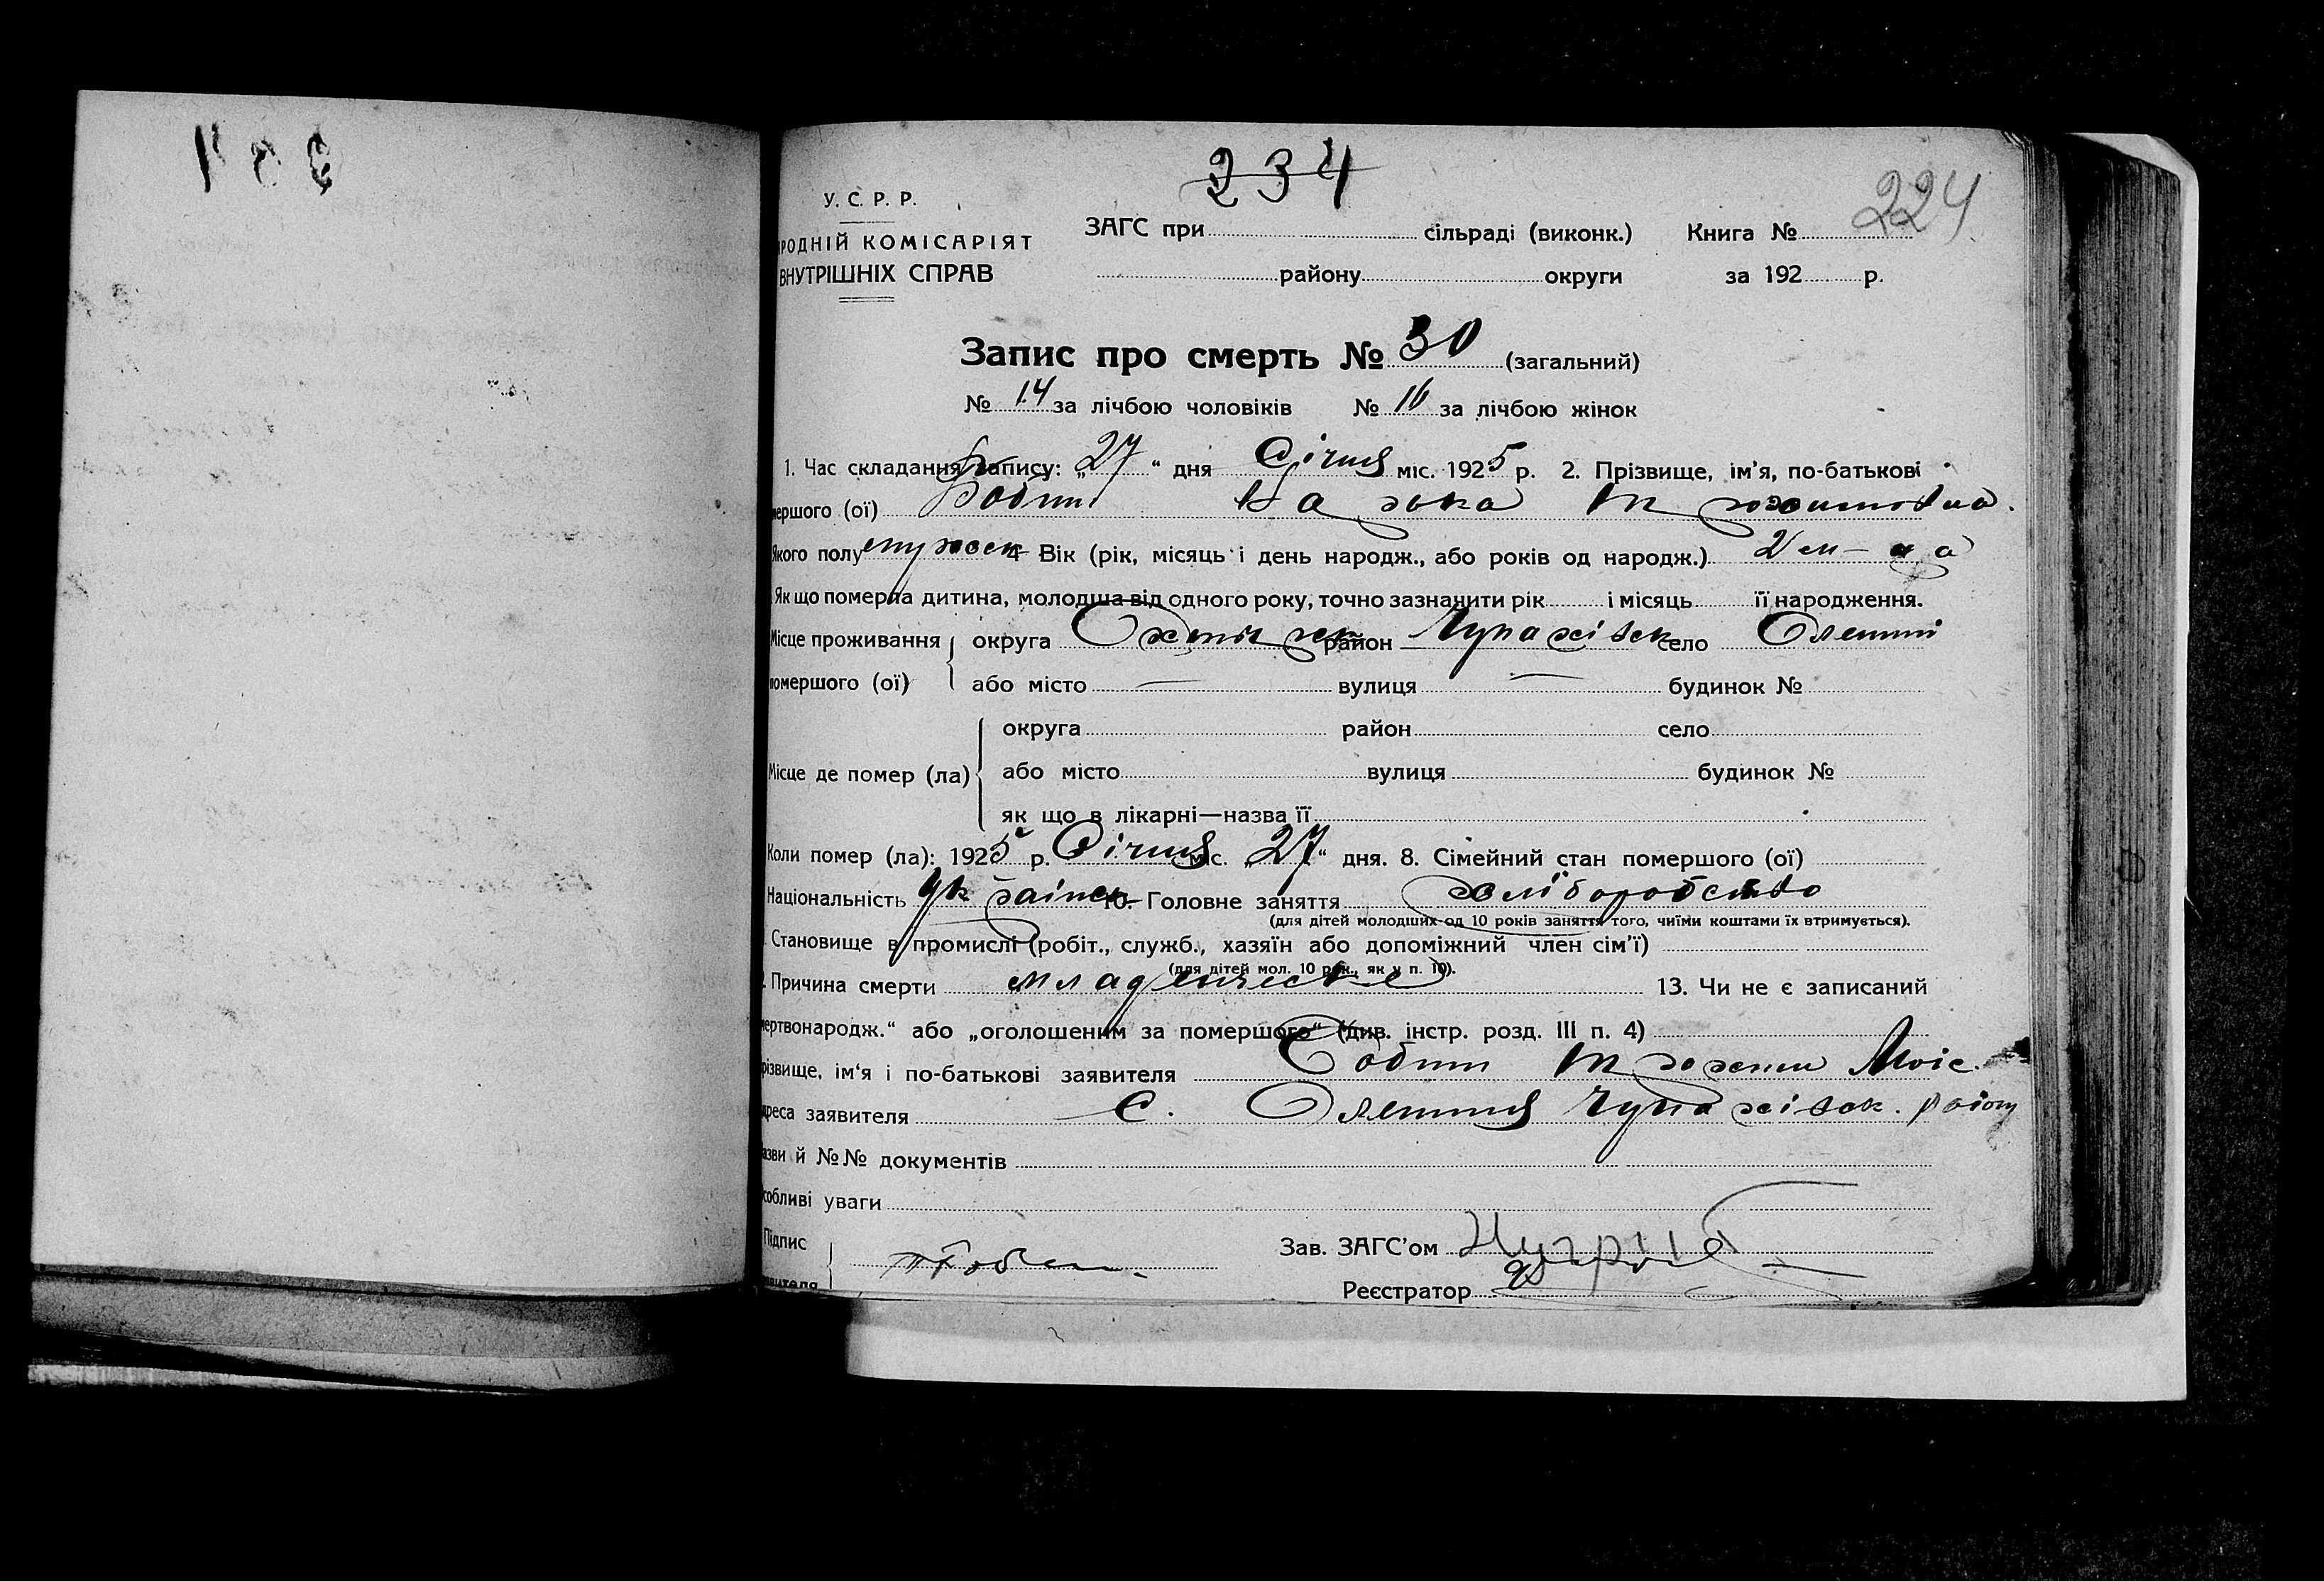 234
224
У. С. Р. Р.
РОДНІЙ КОМІСАРІЯТ
ВНУТРІШНІХ СПРАВ
ЗАГС при сільраді (виконк.) Книга №
району округи за 192 р.
Запис про смерть № 30 (загальний)
№ 14 за лічбою чоловіків № 16 за лічбою жінок
1. Час складання запису: „27“ дня Січня міс. 1925 р. 2. Прізвище, ім’я, по-батькові
мершого (ої)
Якого полу 4 Вік (рік, місяць і день народж., або років од народж.)
Як що померла дитина, молодша від одного року, точно зазначити рік і місяць її народження.
Місце проживання округа район Чупахівск село Олешні
помершого (ої) або місто — вулиця — будинок №
округа район село
Місце де помер (ла) або місто вулиця будинок №
як що в лікарні—назва її
Коли помер (ла): 1925 р. Січня міс. „27“ дня. 8. Сімейний стан помершого (ої)
Національність Українськ 10. Головне заняття хліборобство
(для дітей молодших од 10 років заняття того, чиїми коштами їх втримується).
Становище в промислі (робіт., служб., хазяїн або допоміжний член сім’ї)
(для дітей мол. 10 рок., як у п. 10).
Причина смерти младенческе 13. Чи не є записаний
мертвонародж.“ або „оголошеним за помершого“ (див. інстр. розд. III п. 4)
різвище, ім‘я і по-батькові заявителя
дреса заявителя с. Олешня Чупахівск. району
азви й №№ документів
собливі уваги
Підпис Зав. ЗАГС’ом
явителя Реєстратор